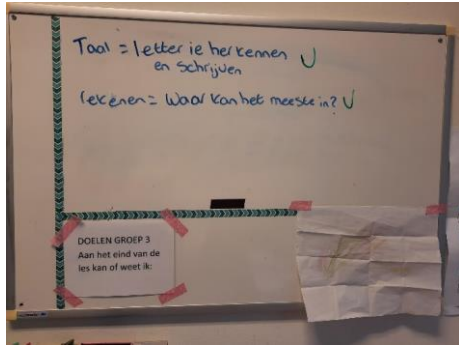 Taal = letter ie herkennen
en schrijven
rekenen = Waar kan het meeste in?
DOELEN GROEP 3
Aan het eind van de
les kan of weet ik: